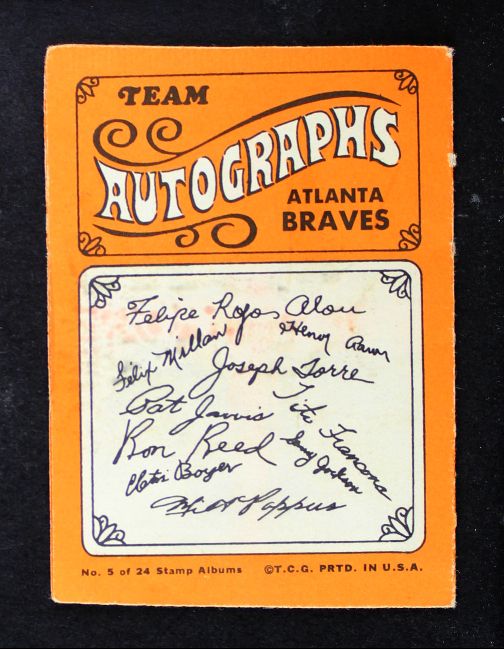 TEAM
AUTOGRAPHS
ATLANTA
BRAVES
Felipe Rojas Alou
Felix Millan
Henry Aaron
Joseph Torre
Pat Jarvis
Tito Francona
Ron Reed
Sonny Jackson
Cletis Boyer
Milt Pappas
No. 5 of 24 Stamp Albums ©T.C.G. PRTD. IN U.S.A.